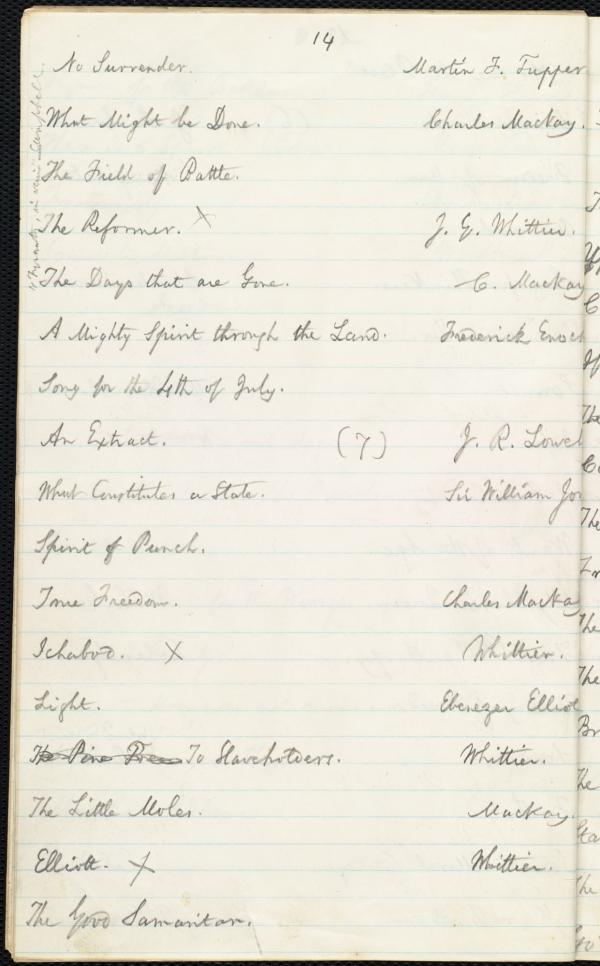 14
No Surrender. Martin F. Tupper
What Might be Done. Charles Mackay.
The Field of Battle.
The Reformer. X J. G. Whittier.
The Days that are Gone. C. Mackay
A Mighty Spirit through the Land. Frederick Enoch
Song for the 4th of July.
An Extract. (7) J. R. Lowel
What Constitutes a State. Sir William Jon
Spirit of Punch.
True Freedom. Charles Mackay
Ichabod. X Whittier.
Light. Ebenezer Elliot
The Pine Tree To Slaveholders. Whittier.
The Little Moles. Mackay.
Elliott. X Whittier.
The Good Samaritan.
Campbell